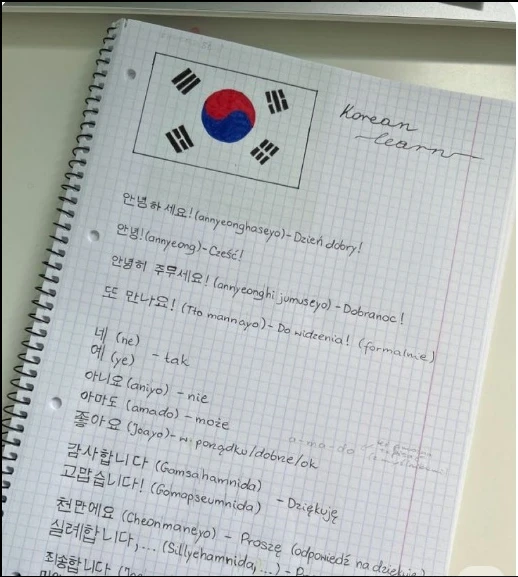 Korean
learn
안녕하세요! (annyeonghaseyo) - Dzień dobry!
안녕! (annyeong) - Cześć!
안녕히 주무세요! (annyeonghi jumuseyo) - Dobranoc!
또 만나요! (Tto mannayo) - Do widzenia! (formalnie)
네 (ne)
예 (ye) - tak
아니요 (aniyo) - nie
아마도 (amado) - może
a-ma-do
좋아요 (Joayo) - w porządku/dobrze/ok
감사합니다 (Gamsahamnida)
고맙습니다! (Gomapseumnida) - Dziękuję
천만에요 (Cheonmaneyo) - Proszę (odpowiedź na dziękuję)
실례합니다,... (Sillyehamnida,...) -
죄송합니다